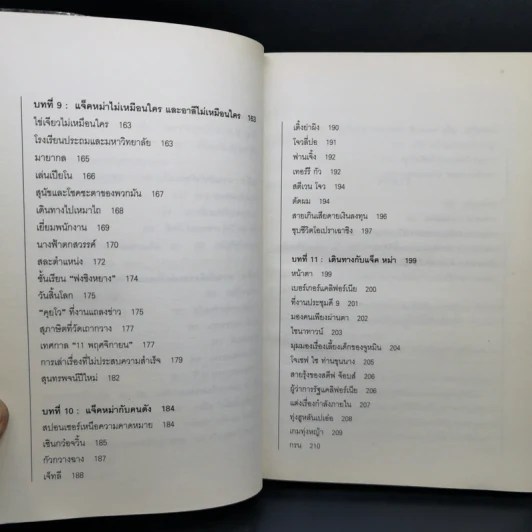 บทที่ 9 : แจ็คหม่าไม่เหมือนใคร และอาลีไม่เหมือนใคร 163
ไช่เจียวไม่เหมือนใคร 163
โรงเรียนประถมและมหาวิทยาลัย 163
มายากล 165
เล่นเปียโน 166
สุนัขและโชคชะตาของพวกมัน 167
เดินทางไปเหมาไถ 168
เยี่ยมพนักงาน 169
นางฟ้าตกสวรรค์ 170
สละตำแหน่ง 172
ชั้นเรียน "ฟงชิงหยาง" 174
วันสิ้นโลก 175
"คุยโว" ที่งานแถลงข่าว 175
สุภาษิตที่วัดเถากวาง 177
เทศกาล "11 พฤศจิกายน" 177
การเล่าเรื่องที่ไม่ประสบความสำเร็จ 179
สุนทรพจน์ปีใหม่ 182
บทที่ 10 : แจ็คหม่ากับคนดัง 184
สปอนเซอร์เหนือความคาดหมาย 184
เซินกว๋อจวิ้น 185
กัวกวางฉาง 187
เจ็ทลี 188
เติ้งย่าผิง 190
โจวลี่ปอ 191
ฟานเจิ้ง 192
เทอร์รี่ กัว 192
สตีเวน โจว 194
ตัดผม 194
สายเกินเสียดายเงินลงทุน 196
ชุบชีวิตโอเปราเฉาซิง 197
บทที่ 11 : เดินทางกับแจ็ค หม่า 199
หน้าตา 199
เบอร์เกอร์แคลิฟอร์เนีย 200
ที่งานประชุมดี 9 201
มองคนเพียงผ่านตา 202
ไชนาทาวน์ 203
มุมมองเรื่องเลี้ยงเด็กของจูหมิน 204
โจเซฟ ไช่ ท่านขุนนาง 205
สายรุ้งของสตีฟ จ๊อบส์ 208
ผู้ว่าการรัฐแคลิฟอร์เนีย 206
แต่งเรื่องกำลังภายใน 207
ทุ่งสูหลันเปเอ่อ 208
เกมทุ่งหญ้า 209
กรน 210